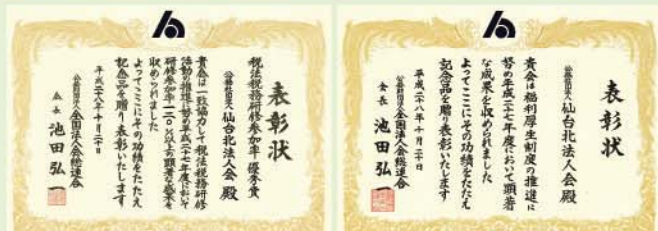 表彰状
税法税務研修参加率 優秀賞
公益社団法人 仙台北法人会 殿
貴会は一致協力して税法税務研修
活動の推進に努め平成二十七年度において
研修参加率一二〇%以上の顕著な成果を
収められました
よってここにその功績をたたえ
記念品を贈り表彰いたします
平成二十八年十月二十日
公益財団法人 全国法人会総連合
会長 池田弘一
表彰状
公益社団法人 仙台北法人会 殿
貴会は福利厚生制度の推進に
努め平成二十七年度において顕著
な成果を収められました
よってここにその功績をたたえ
記念品を贈り表彰いたします
平成二十八年十月二十日
公益財団法人 全国法人会総連合
会長 池田弘一